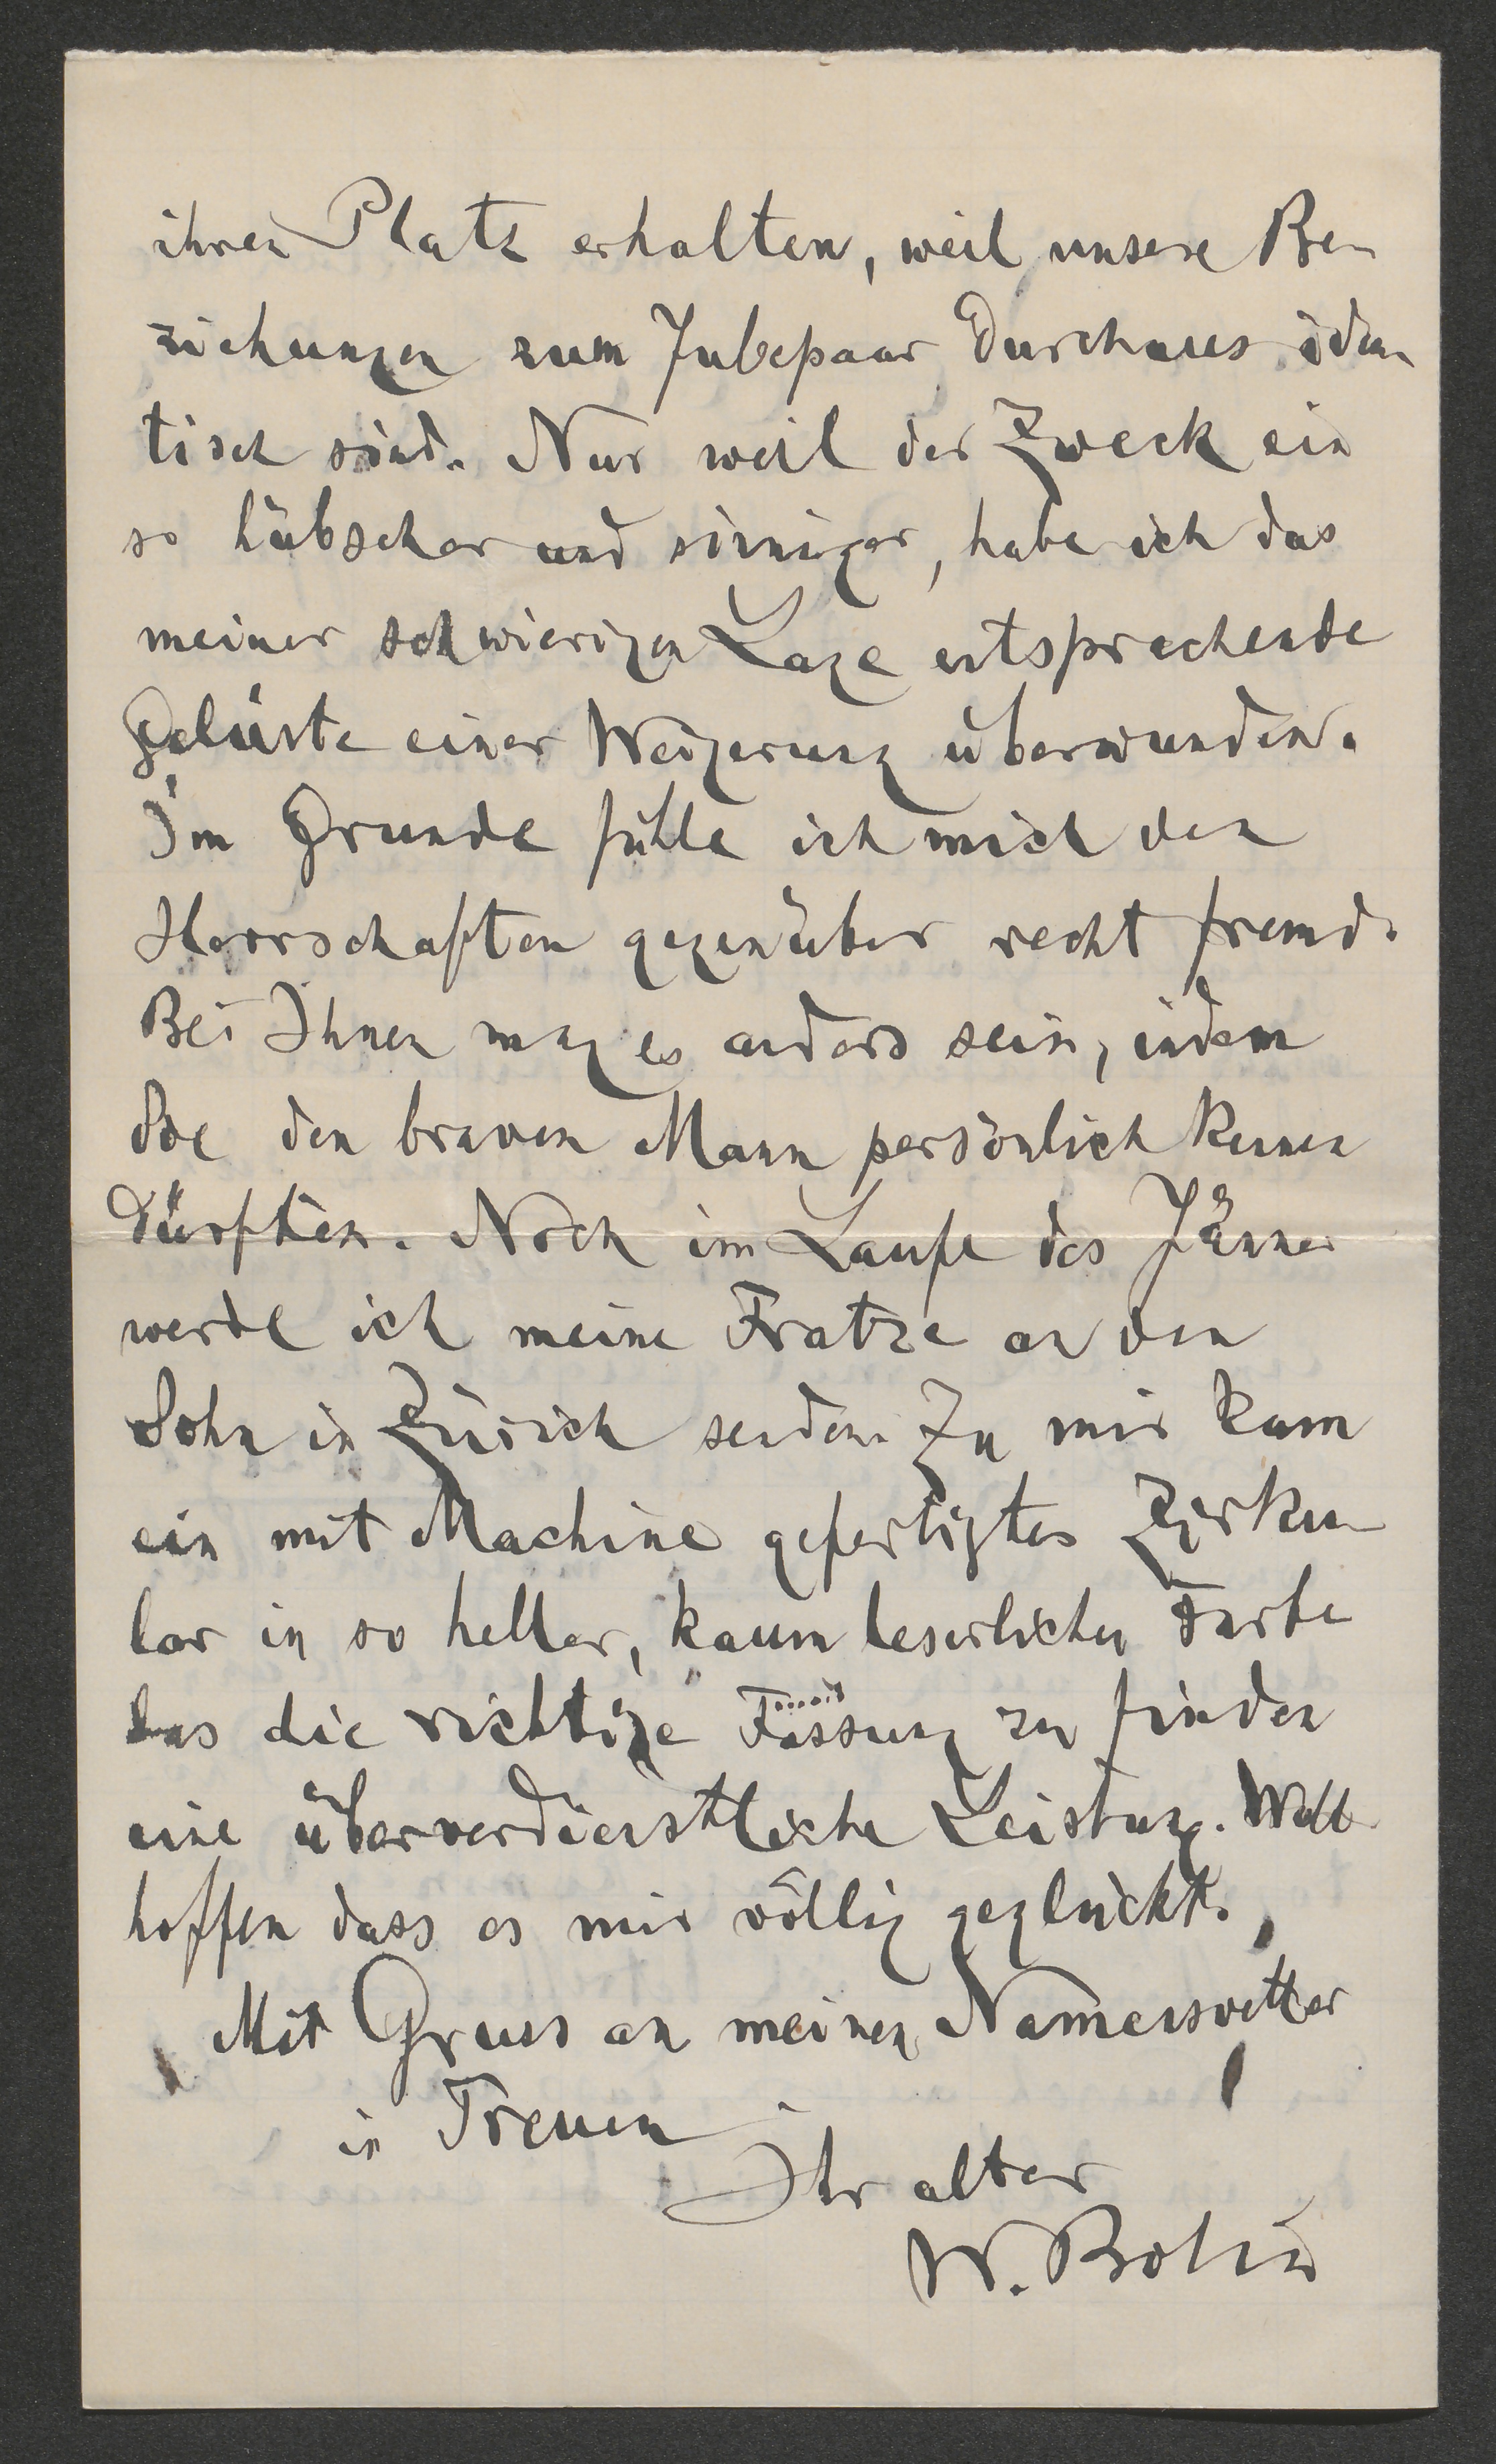 ihren Platz erhalten, weil unsere Be-
ziehungen zum Jubepaar durchaus iden-
tisch sind. Nur weil der Zweck ein
so hübscher und sinniger, habe ich das
meiner schwierigen Lage entsprechende
Gelüste einer Weigerung überwunden.
Im Grunde fühle ich mich den
Herrschaften gegenüber recht fremd.
Bei Ihnen mag es anders sein, indem
Sie den braven Mann persönlich kennen
dürften. Noch im Laufe des Jänner
werde ich meine Fratze an den
Sohn in Zürich senden. Zu mir kam
ein mit Machine gefertigtes Zirku-
lar in so heller, kaum leserlicher Farbe
das die richtige Fassung zu finden
eine überverdienstliche Leistung. Will
hoffen dass es mir völlig geglückt.
Mit Gruss an meinen Namensvetter
in Treuen
Ihr alter
W. Bolin